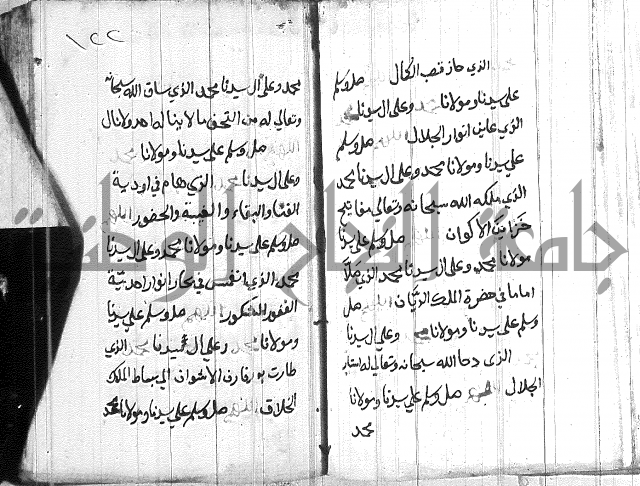 الذي حاز قصب الكمال صل وسلم
على سيدنا ومولانا محمد وعلى ال سيدنا محمد
الذي عاين انوار الجلال اللهم صل وسلم
علي سيدنا ومولانا محمد وعلى ال سيدنا محمد
الذي ملكه الله سبحانه وتعالى مفاتيح
خزاين الاكوان صل وسلم على سيدنا
مولانا محمد وعلى ال سيدنا محمد الذي صلا
اماما في حضرة الملك الديان اللهم صل
وسلم على سيدنا ومولانا محمد وعلى ال سيدنا
الذي دعا الله سبحانه وتعالى
الجلال اللهم صل وسلم علي سيدنا ومولانا
محمد
١٢٢
محمد وعلى ال سيدنا محمد الذي ساق الله سبحانه
وتعالى له من التحف ما لا يناله احد ولا نال
اللهم صل وسلم على سيدنا ومولانا محمد
وعلى ال سيدنا محمد الذي هام في اودية
الفنا والبقاء والغيبة والحضور اللهم
صل وسلم على سيدنا ومولانا محمد وعلى ال سيدنا
محمد الذي انغمس في بحار انوار احدية
الغفور الشكور اللهم صل وسلم علي سيدنا
ومولانا محمد وعلى ال سيدنا محمد الذي
طارت به رفارف الاشواق الي بساط الملك
الخلاق اللهم صل وسلم علي سيدنا ومولانا محمد
جامعة النجاح الوطنية